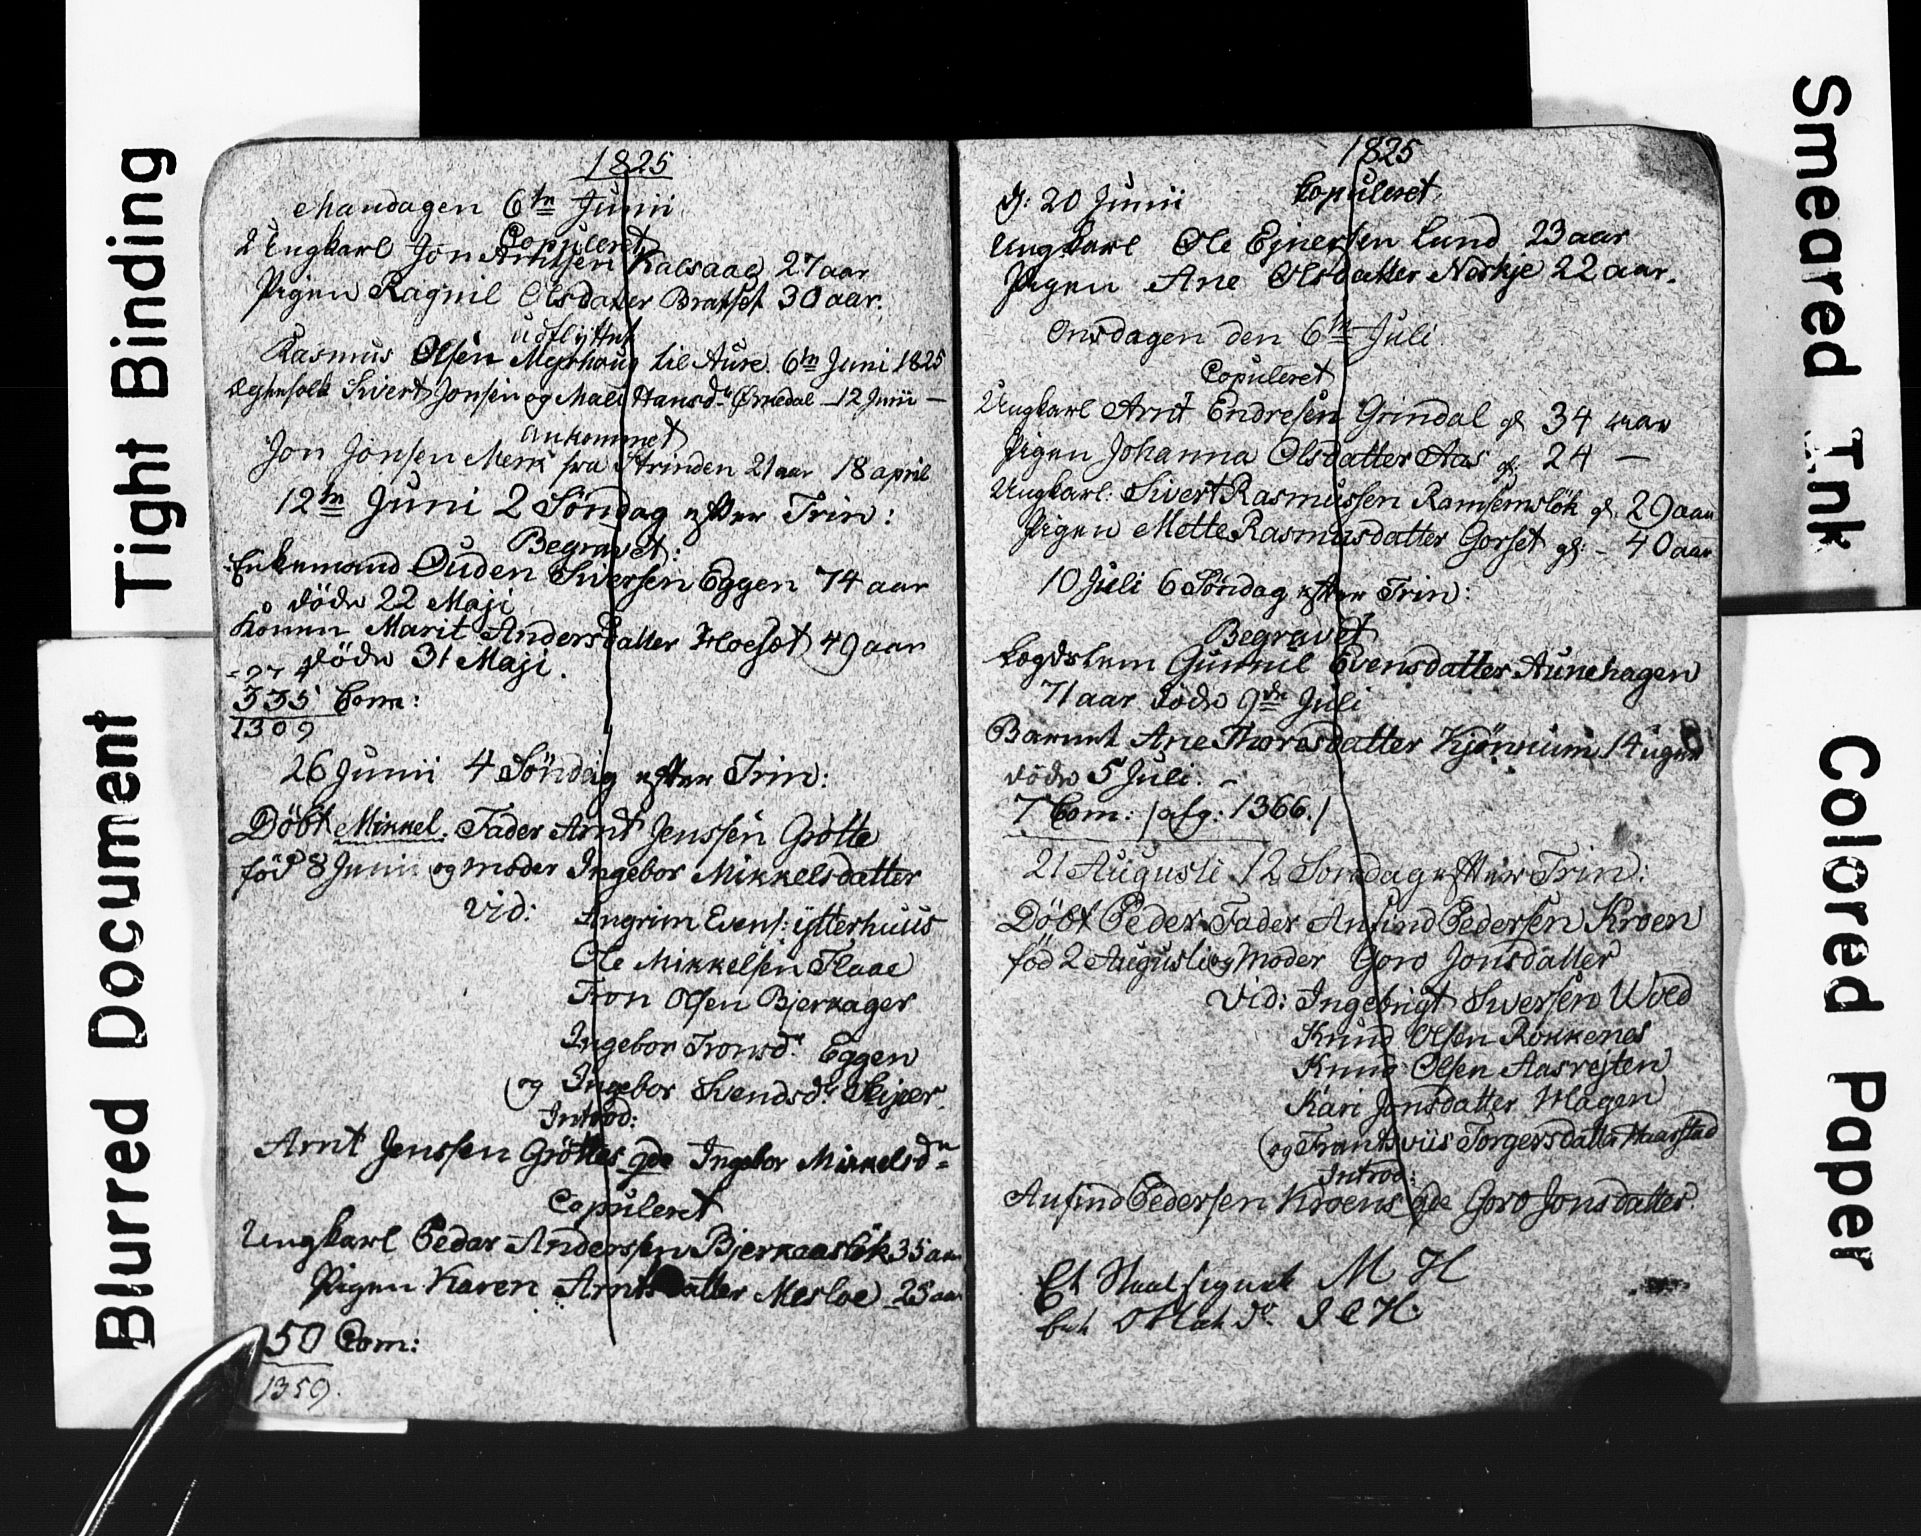 Tight Binding
Blurred Document
1825
Mandagen 6te Junii
Copuleret
2 Ungkarl Jon Arntsen Kalsaae 27 aar
Pigen Ragnil Olsdatter Bratset 30 aar.
udflyttet
Rasmus Olsen Myrhoug til Aure. 6te Juni 1825
Egtefolk Sivert Jonsen og Mali Hansdr Ørnedal - 12 Junii -
ankommet
Jon Jonsen Merk fra Strinden 21 aar 18 april
12te Juni 2 Søndag efter Trin:
Begravet:
Enkemand Ouden Siversen Eggen 74 aar
døde 22 Maji
Konen Marit Andersdatter Hoesæt 49 aar
døde 31 Maji.
974
335 Com:
1309
26 Junii 4 Søndag efter Trin:
Døbt Mikkel. Fader Arnt Jenssen Grötte
fød 8 Junii og moder Ingebor Mikkelsdatter
Vid: Angrim Evens: ytterhuus
Ole Mikkelsen Flaae
Tron Olsen Bjerkager
Ingebor Tronsd: Eggen
og Ingebor Svendsdr Skjær
Introd:
Arnt Jenssen Gröttes qde Ingebor Mikkelsdr
Copuleret
Ungkarl Peder Andersen Bjerkaasløk 35 aar
Pigen Karen Arntsdatter Mesloe 25 aar
50 Com:
1359.
1825
d: 20 Junii Copuleret
Ungkarl Ole Ejnersen Lund 23 aar
Pigen Ane Olsdatter Neskje 22 aar.
Onsdagen den 6te Juli
Copuleret
Ungkarl Arnt Endresen Grindal gl 34 aar
Pigen Johanna Olsdatter Aas gl: 24 —
Ungkarl: Sivert Rasmussen Ramsemsløk gl. 29 aar
Pigen Mette Rasmusdatter Gorset gl: - 40 aar
10 Juli 6 Søndag efter Trin:
Begravet
Legdslem Gunnil Evensdatter Aunehagen
71 aar døde 9de Juli
Barnet Ane Thoresdatter Kjönnium 14 uger
døde 5 Juli. -
7 Com: /afg: 1366./
21 Augusti 12 Søndag efter Trin:
Døbt Peder Fader Anfind Pedersen Kroen
fød 2 Augusti og Moder Goro Jonsdatter
Vid: Ingebrigt Siversen Wold
Knud Olsen Rokkenes
Knud Olsen Aasrejten
Kari Jonsdatter Hagen
og Frantsviis Torgersdatter Haarstad
Introd:
Anfind Pedersen Kroens qde Goro Jonsdatter.
Et Staal signet M H
do. I C H.
Smeared Ink
Colored Paper